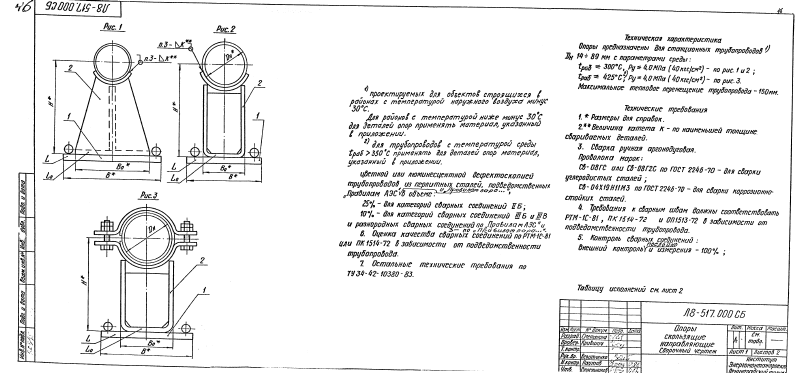 Л8-517.000 СБ
Рис. 1
Рис. 2
п.3-△К**
п.3-△К**
2
1
H*
L
L₀
B₀*
B*
H*
2
1
L
L₀
B₀*
B*
Рис. 3
H*
2
1
L
L₀
B₀*
B*
1) проектируемых для объектов строящихся в
районах с температурой наружного воздуха минус
30°С.
Для районов с температурой ниже минус 30°С
для деталей опор применять материал, указанный
в приложении.
2) для трубопроводов с температурой среды
tраб > 350°С применять для деталей опор материал,
указанный в приложении.
цветной или люминесцентной дефектоскопией
трубопроводов из перлитных сталей, подведомственных
„Правилам АЭС" в объеме:
25% - для категорий сварных соединений II Б;
10% - для категорий сварных соединений III Б и III В
и разнородных сварных соединений по „Правилам АЭС" и
6. Оценка качества сварных соединений по РТМ-1С-81
или ПК 1514-72 в зависимости от подведомственности
трубопровода.
7. Остальные технические требования по
ТУ 34-42-10380-83.
Техническая характеристика
Опоры предназначены для станционных трубопроводов 1)
Дн 14÷89 мм с параметрами среды:
tраб = 300°С, Ру = 4,0 МПа (40 кгс/см²) - по рис. 1 и 2;
tраб = 425°С, Ру = 4,0 МПа (40 кгс/см²) - по рис. 3.
Максимальное тепловое перемещение трубопровода - 150мм.
Технические требования
1. * Размеры для справок.
2.** Величина катета К - по наименьшей толщине
свариваемых деталей.
3. Сварка ручная аргонодуговая.
Проволока марок:
Св-08ГС или Св-08Г2С по ГОСТ 2246-70 - для сварки
углеродистых сталей;
Св-04Х19Н11М3 по ГОСТ 2246-70 - для сварки коррозионно-
стойких сталей.
4. Требования к сварным швам должны соответствовать
РТМ-1С-81, ПК 1514-72 и ОП1513-72 в зависимости от
подведомственности трубопровода.
5. Контроль сварных соединений:
Внешний контроль и измерения - 100%;
Таблицу исполнений см. лист 2
Л8-517.000 СБ
Опоры
скользящие
направляющие
Сборочный чертеж
Лит. Масса Масшт.
См.
табл.
Лист 1 Листов 2
Институт